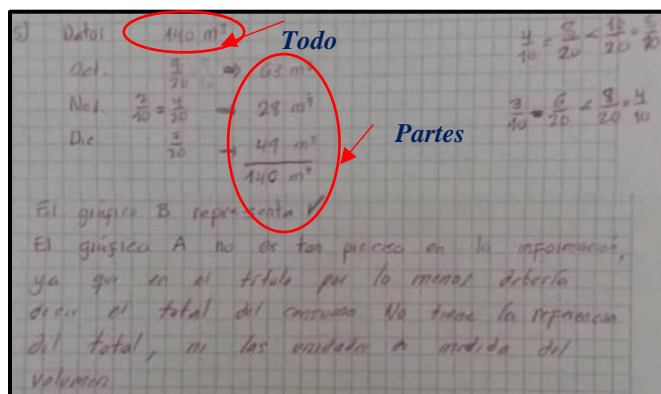 5) Datos 140 m³ Todo
Oct. 9/20 ⇒ 63 m³
Nov. 2/10 = 4/20 → 28 m³
Dic 7/20 → 49 m³ Partes
140 m³
4/10 = 8/20 < 10/20 = 5/10
3/10 = 6/20 < 8/20 = 4/10
El gráfico B representa ✓
El gráfico A no es tan preciso en la información,
ya que en el título por lo menos debería
decir el total del consumo No tiene la referencia
del total, ni las unidades de medida del
volumen